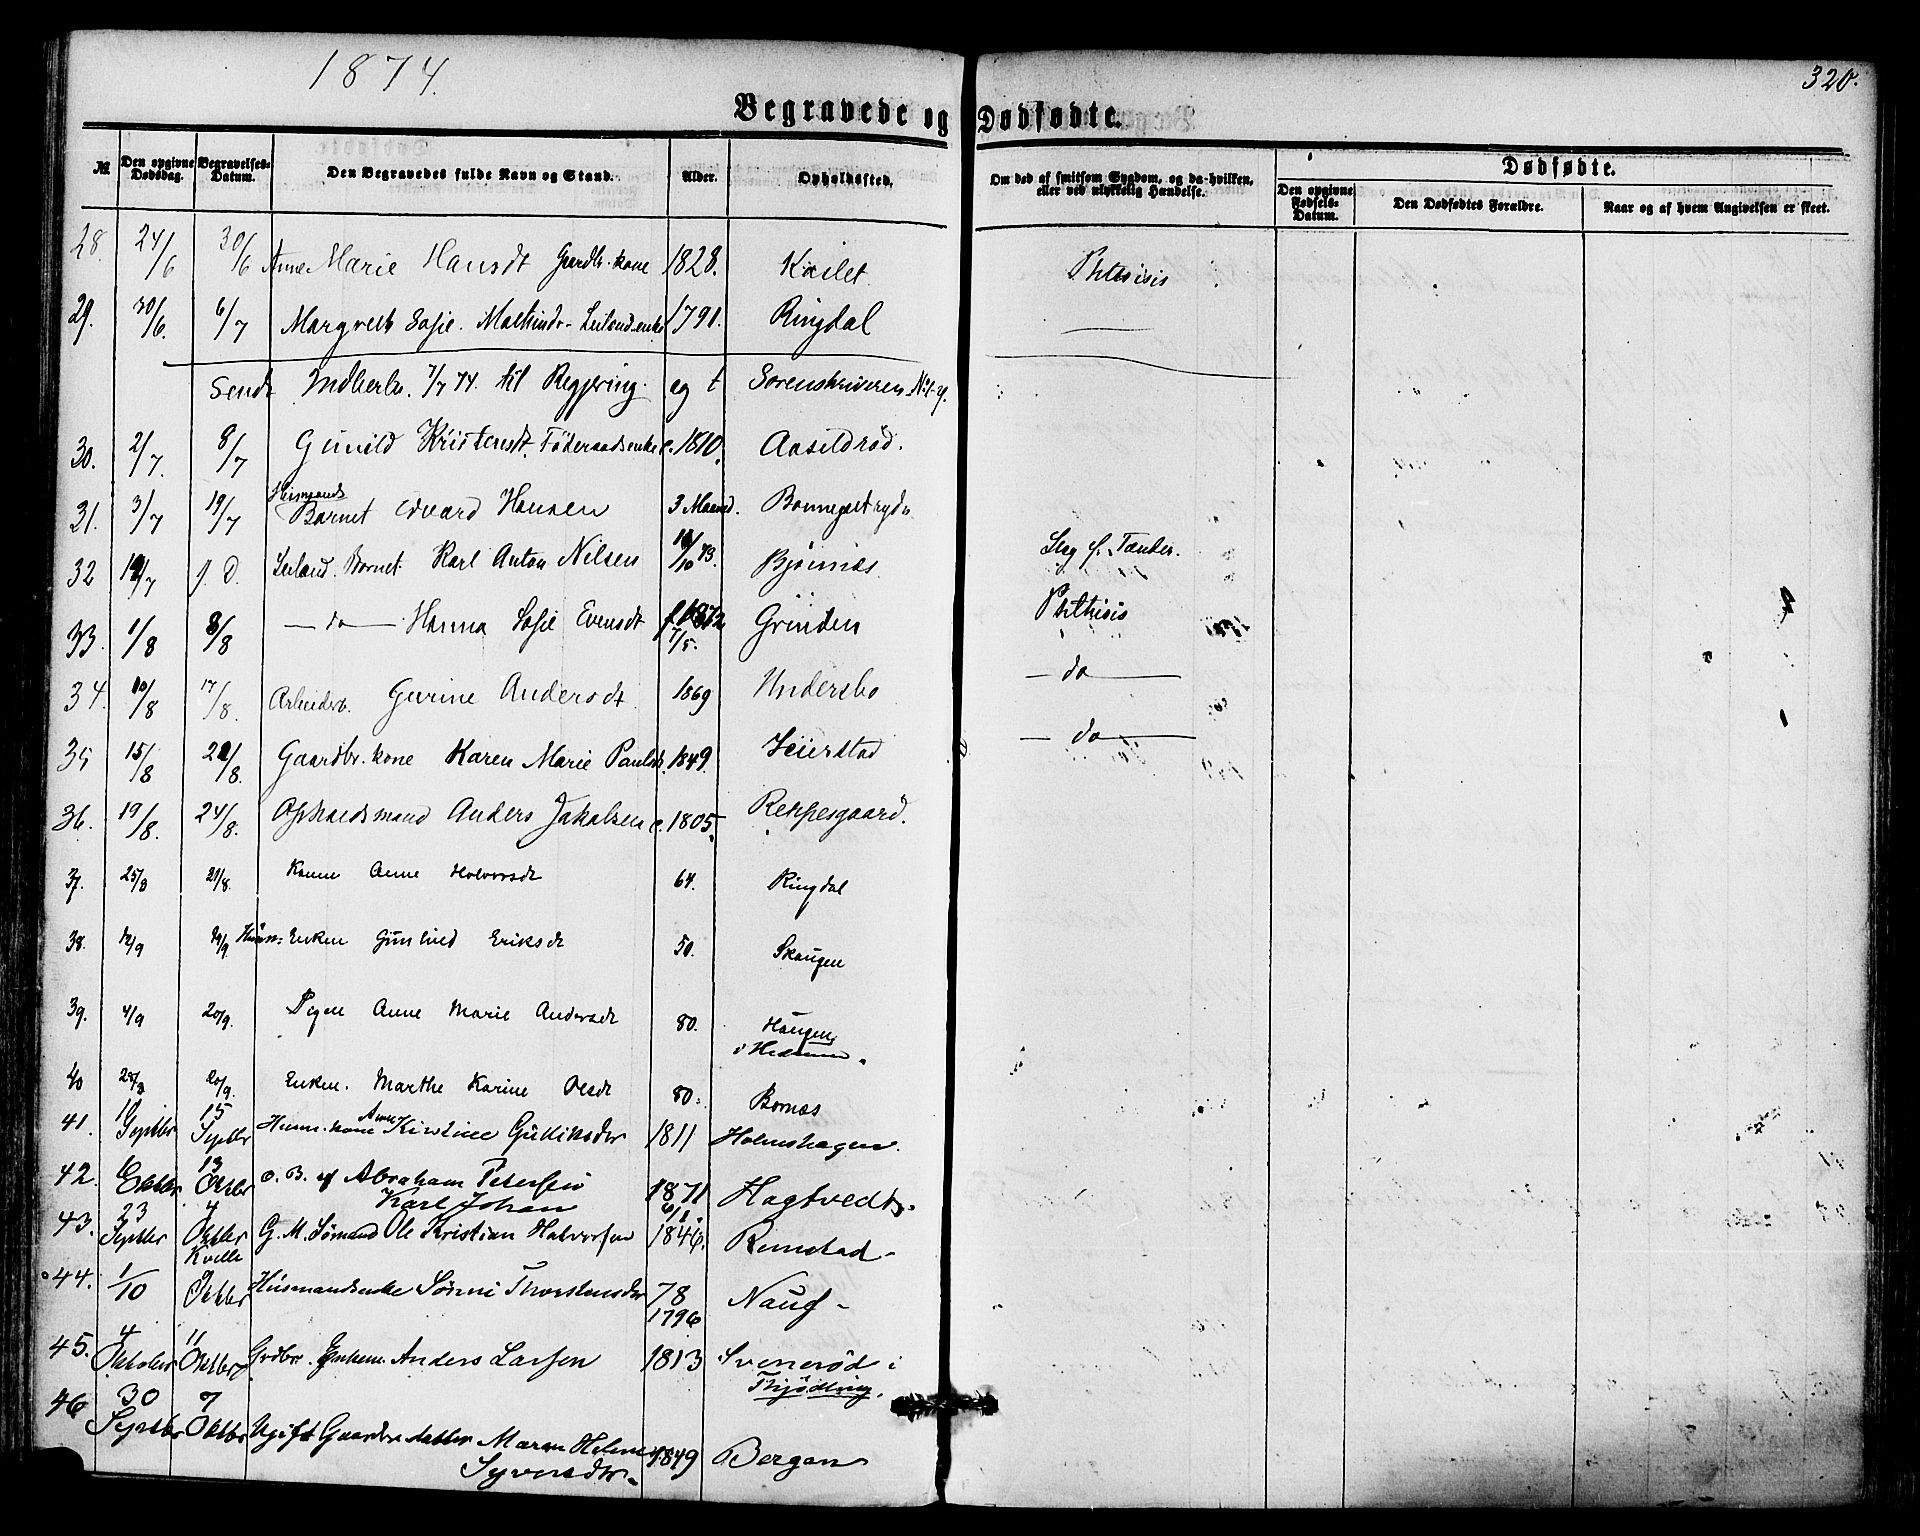 1874.
320.
Begravede og Dødfødte.
№
Den opgivne Dødsdag.
Begravelses-Datum.
Den Begravedes fulde Navn og Stand.
Alder.
Opholdssted.
Om død af smitsom Sygdom, og da hvilken, eller ved ulykkelig Hændelse.
Dødfødte.
Den opgivne Fødsels-Datum.
Den Dødfødtes Forældre.
Naar og af hvem Angivelsen er skeet.
28. 24/6 30/6 Anne Marie Hansdt Gaardb. kone 1828. Phthisis
29. 30/6 6/7 Sofie. 1791. Ringdal
Sendt Indberb. 7/7 74. til Regjering. og t Sorenskriveren
30. 2/7 8/7 Gunild Kristensdt. Föderaadsenke c. 1810. Aasildröd.
31. 3/7 19/7 Husmands Barnet Edvard Hansen 3 Maaned.
32 /7 s. D. Leiland. Barnet Karl Anton Nilsen /10 73. Bjørnnæs. Slag f. Tænder.
33. 1/8 8/8 — do — Hanna Sofie Evensdt f. 1872 7/5. Grinden Phthisis
34. 10/8 17/8. Arbeiderb. Gurine Andersdt 1869 Undersbo — do —
35 15/8 /8. Gaardbr. kone Karen Marie Paulsd. 1849. Seierstad — do —
36. 19/8. 24/8. Anders Jakobsen c. 1805. Reppesgaard.
37. 25/8 /8. Konen Anne Halvorsdt 64. Ringdal
38. 12/9 /9 Husm. Enken Gunhild Eriksdt 50. Skaugen
39. 4/9 20/9. Pigen Anne Marie Andersdt 80. Haugen
i Hedrum.
40 20/9. Enken. Marthe Karine Olsdt 80. Bornæs
41. 11 Septbr 15 Septbr Husm. kone Anne Kirstine Gulliksdtr 1811 Holmshagen.
42. 6 Oktbr 13 Oktbr o. B. af Abraham Petersen
Karl Johan 1871 6/1. Hagtvedt.
43. 23 Septbr 4 Oktbr Kvelle G. M. Sømand Ole Kristian Halvorsen 1846. Rimstad
44. 1/10 Oktbr Husmandsenke Sørine Thorstensdtr 78 1796 Nauf
45. 4 Oktober 11 Oktbr Grdbr. Enkem. Anders Larsen 1813 Svenerød i
Thjødling.
46 30 Septbr 7 Oktbr Ugift Gaardbr datter Maren Helene
Syversdtr 1849 Bergan